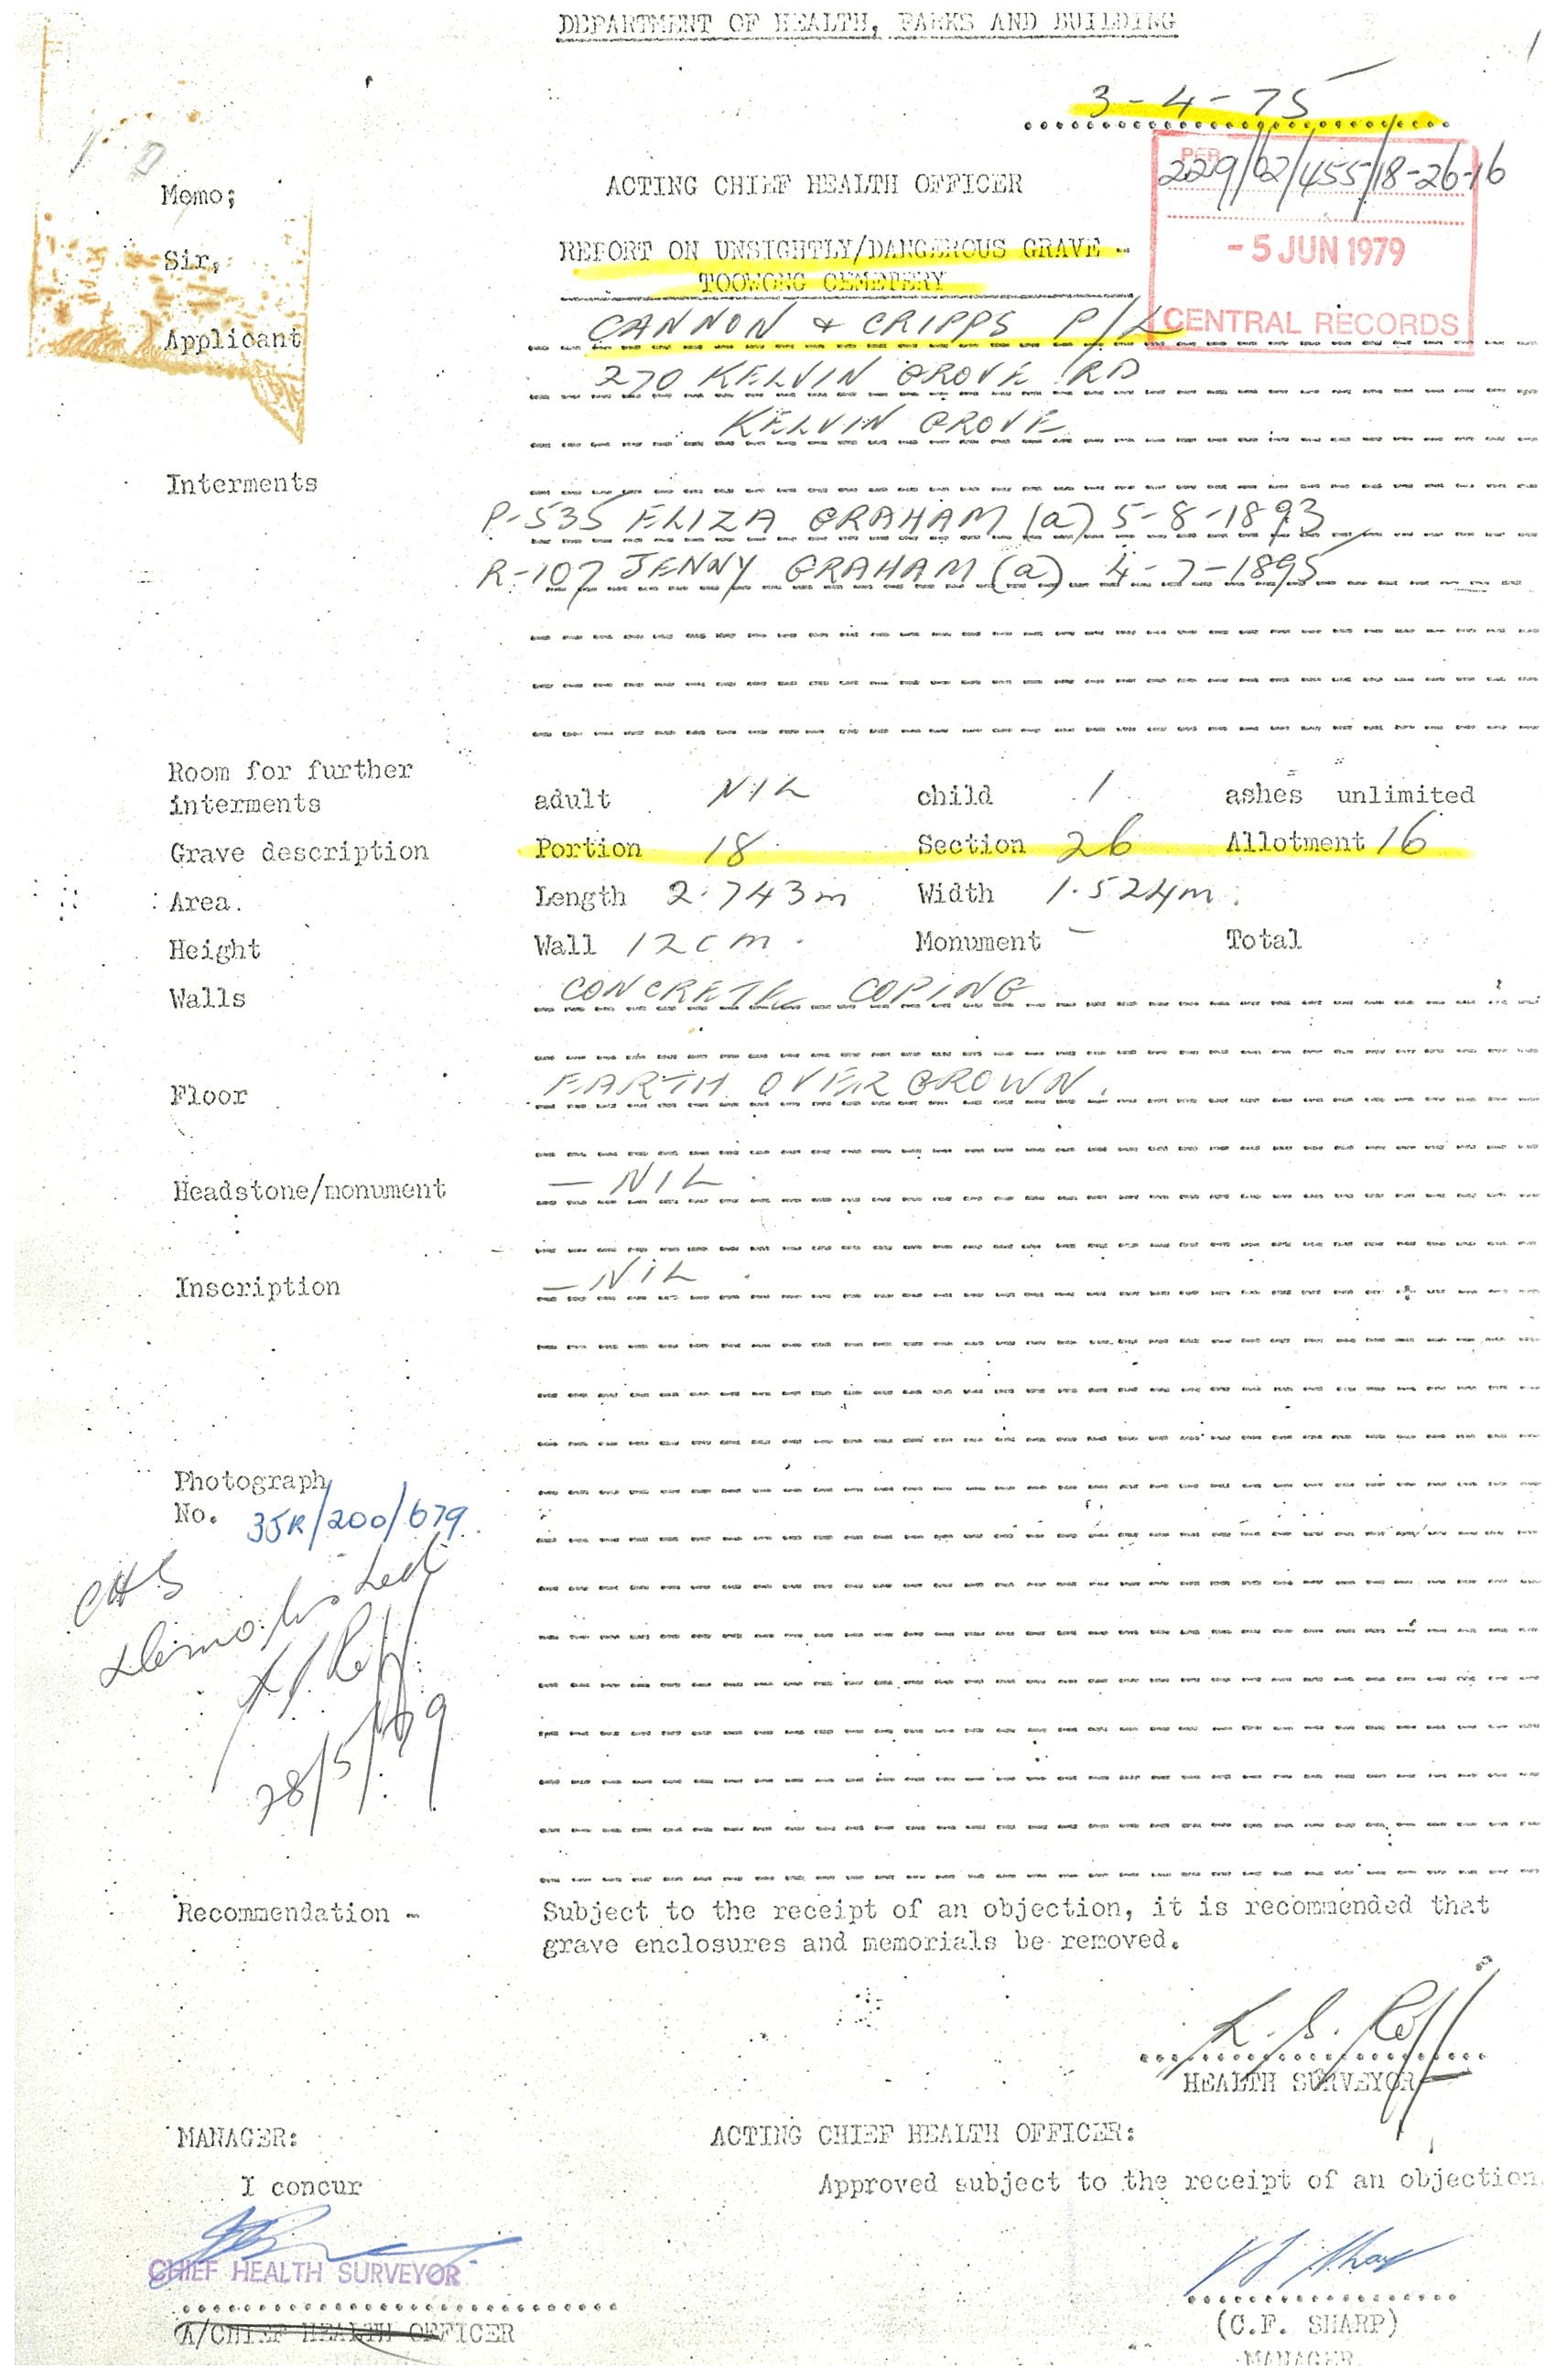 DEPARTMENT OF HEALTH, PARKS AND BUILDING
1
3-4-75
PER
229/02/455/18-26-16
Memo; ACTING CHIEF HEALTH OFFICER
Sir, REPORT ON UNSIGHTLY/DANGEROUS GRAVE -
TOOWONG CEMETERY
- 5 JUN 1979
CENTRAL RECORDS
Applicant CANNON & CRIPPS P/L
270 KELVIN GROVE RD
KELVIN GROVE
Interments
P-535 ELIZA GRAHAM (a) 5-8-1893
R-107 JENNY GRAHAM (a) 4-7-1895
Room for further
interments adult NIL child 1 ashes unlimited
Grave description Portion 18 Section 26 Allotment 16
Area. Length 2.743m Width 1.524m.
Height Wall 12cm. Monument - Total
Walls CONCRETE COPING
Floor EARTH OVERGROWN.
Headstone/monument - NIL.
Inscription - NIL.
Photograph
No. 35R/200/679
CHS
Demolished
28/5/79
Recommendation - Subject to the receipt of an objection, it is recommended that
grave enclosures and memorials be removed.
HEALTH SURVEYOR
MANAGER: ACTING CHIEF HEALTH OFFICER:
I concur Approved subject to the receipt of an objection.
CHIEF HEALTH SURVEYOR
A/CHIEF HEALTH OFFICER (C.F. SHARP)
MANAGER